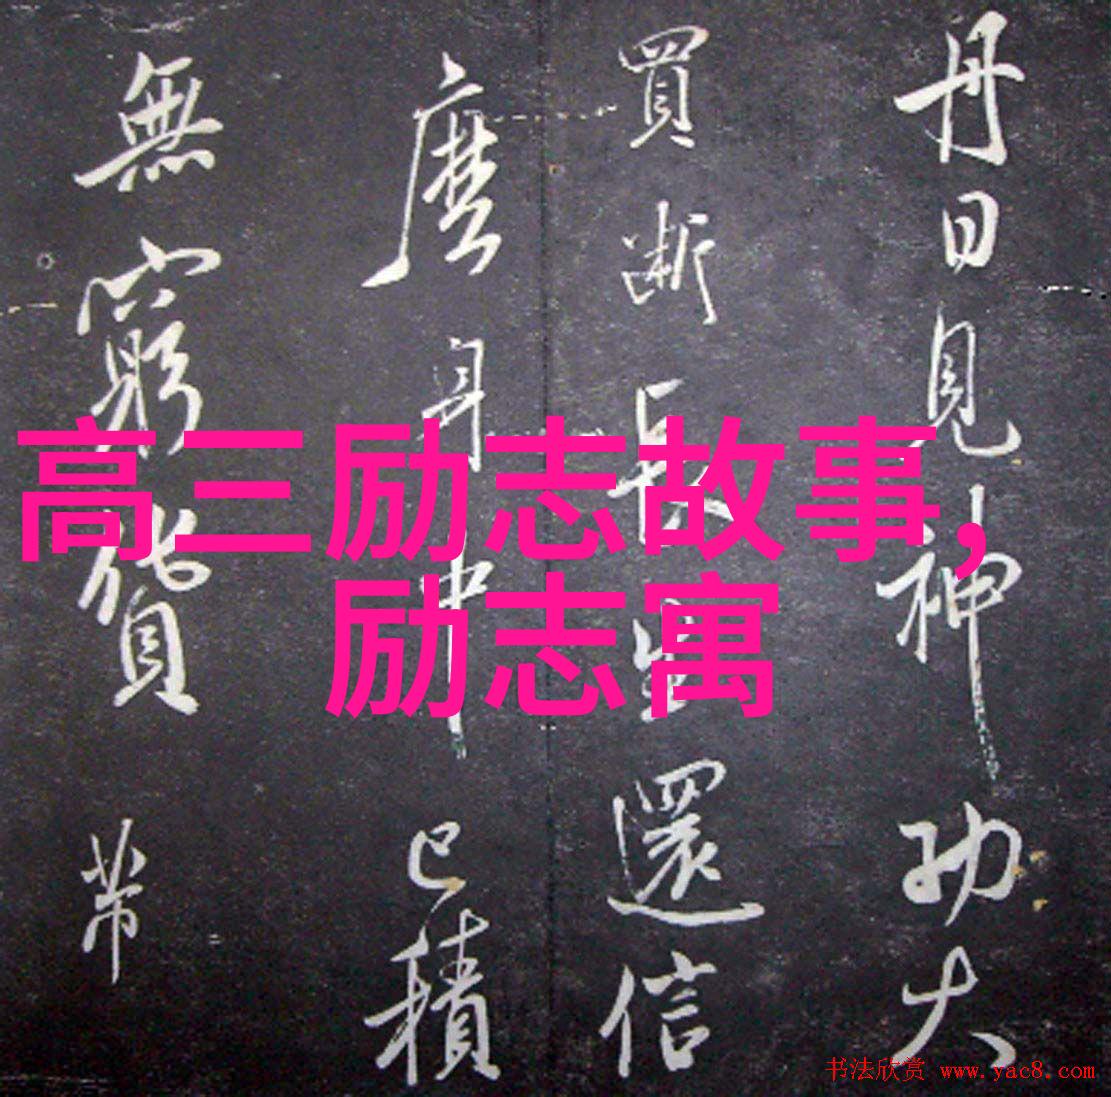 丹日見神功大
買斷長生還信
麼身中已積
無窮貨帶
高三励志故事,
励志寓
书法欣赏 www.yac8.com